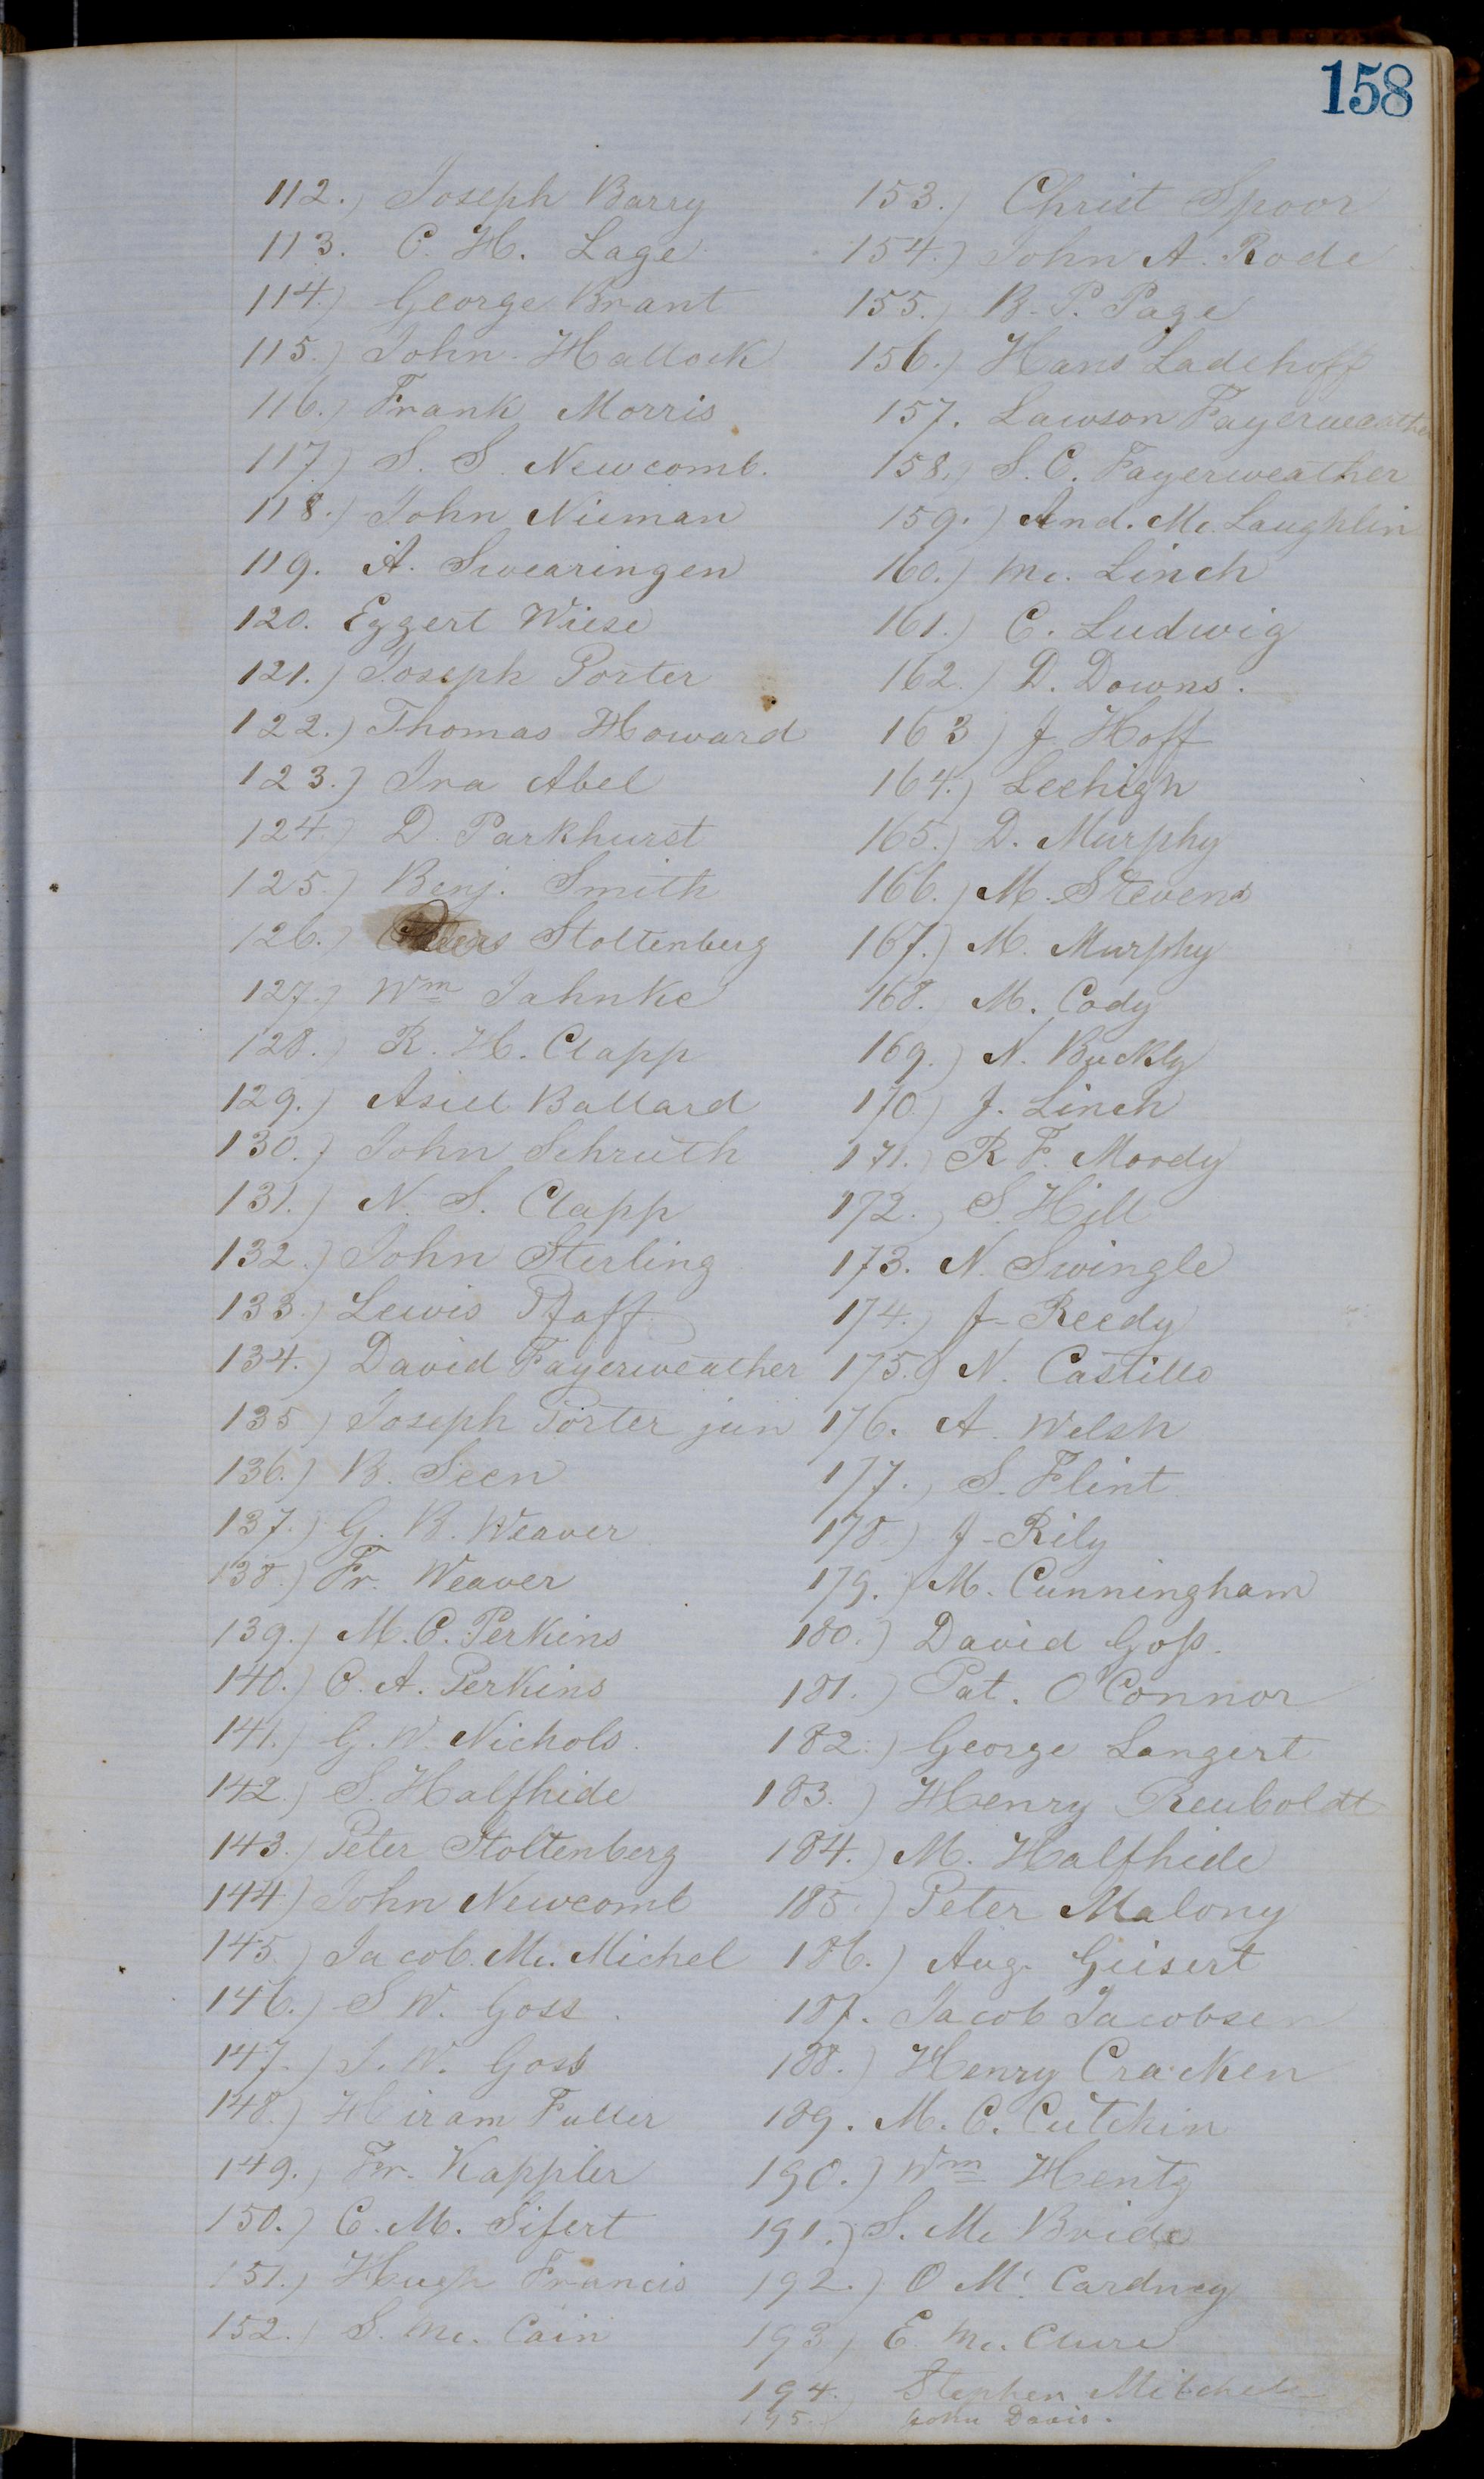 158
112.) Joseph Barry
113. C. H. Lage
114.) George Brant
115.) John Hallock
116.) Frank Morris
117.) S. S. Newcomb.
118.) John Nieman
119. A. Swearingen
120. Eggert Wiese
121.) Joseph Porter
122.) Thomas Howard
123.) Ira Abel
124.) D. Parkhurst
125.) Benj. Smith
126.) Stoltenberg
127.) Wm Jahnke
128.) R. H. Clapp
129.) Asiel Ballard
130.) John Schruth
131.) N. S. Clapp
132.) John Sterling
133.) Lewis Pfaff
134.) David Fayerweather
135.) Joseph Porter jun
136.) B. Seen
137.) G. B. Weaver
138.) Fr. Weaver
139.) M. C. Perkins
140.) C. A. Perkins
141.) G. W. Nichols.
142.) S. Halfhide
143.) Peter Stoltenberg
144.) John Newcomb
145.) Jacob. Mc. Michel
146.) S W. Goss.
147.) J. W. Goss
148.) Hiram Fuller
149.) Fr. Kappler
150.) C. M. Sifert
151.) Hugh Francis
152.) S. Mc. Cain
153.) Christ Spoor
154.) John A. Rode
155.) B. P. Page
156.) Hans Ladehoff
157. Lawson Fayerweather
158.) S. C. Fayerweather
159.) And. Mc. Laughlin
160.) Mc. Linch
161.) C. Ludwig
162.) D. Downs.
163.) J Hoff
164.) Leehigh
165.) D. Murphy
166.) M. Stevens
167.) M. Murphy
168. M. Cody
169.) N. Buckly
170.) J. Linch
171.) R F. Moody
172.) S. Hill
173. N. Swingle
174.) J- Reedy
175.) N. Castillo
176. A. Welsh
177.) S. Flint
178.) J- Rily
179.) M. Cunningham
180.) David Goss.
181.) Pat. O'Connor
182.) George Langert
183.) Henry Reuboldt
184.) M. Halfhide
185.) Peter Malony
186.) Aug. Geisert
187. Jacob Jacobsen
188.) Henry Cracken
189. M. C. Cutchin
190.) Wm Hentz
191.) S. Mc Bride
192.) O Mc. Cardney
193.) E. Mc. Clure
194. Stephen Mitchell
195. John Davis.